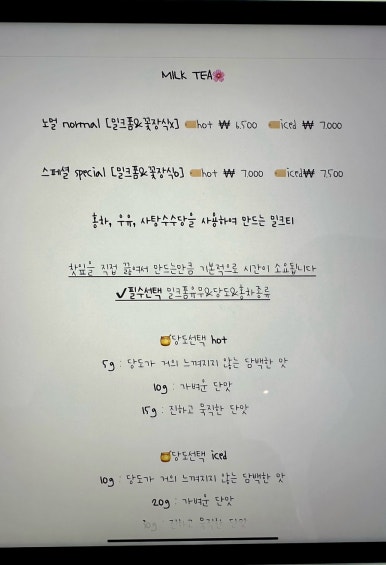 MILK TEA🌸
노멀 normal [밀크폼&꽃장식x] hot ₩ 6.500 iced ₩ 7.000
스페셜 special [밀크폼&꽃장식o] hot ₩ 7.000 iced ₩ 7.500
홍차, 우유, 사탕수수당을 사용하여 만드는 밀크티
찻잎을 직접 끓여서 만드는만큼 기본적으로 시간이 소요됩니다
✓필수선택 밀크폼유무&당도&홍차종류
🍯당도선택 hot
5g : 당도가 거의 느껴지지 않는 담백한 맛
10g : 가벼운 단맛
15g : 진하고 묵직한 단맛
🍯당도선택 iced
10g : 당도가 거의 느껴지지 않는 담백한 맛
20g : 가벼운 단맛